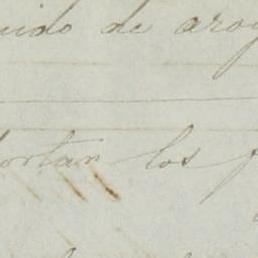 uido de aroy
ortan los f